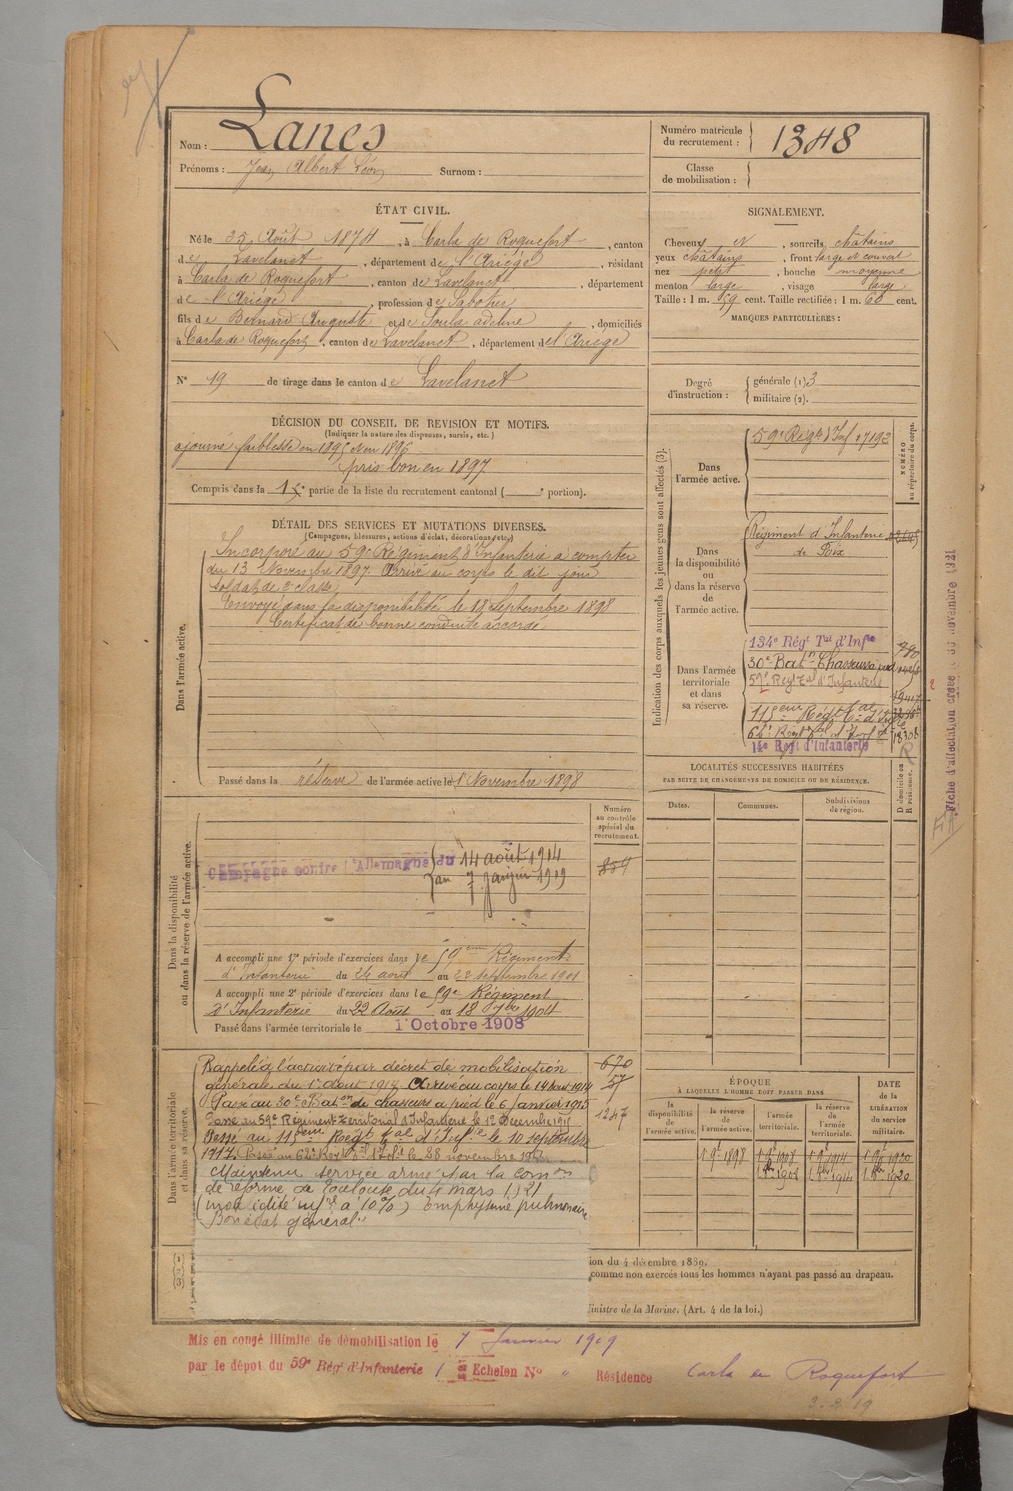 Nom : Lanes
Prénoms : Jean Albert Léon Surnom :
Numéro matricule
du recrutement : 1348
Classe
de mobilisation :
ÉTAT CIVIL.
Né le 25 Août 1874, à Carla de Roquefort, canton
de Lavelanet, département de l'Ariège, résidant
à Carla de Roquefort, canton de Lavelanet, département
de l'Ariège, profession de Sabotier
fils de Bernard Auguste et de Soula adeline, domiciliés
à Carla de Roquefort, canton de Lavelanet, département de l'Ariège
N° 19 de tirage dans le canton de Lavelanet
SIGNALEMENT.
Cheveux et, sourcils châtains
yeux châtains, front large et couvert
nez petit, bouche moyenne
menton large, visage large
Taille : 1 m. 59 cent. Taille rectifiée : 1 m. 60 cent.
MARQUES PARTICULIÈRES :
Degré
d'instruction :
générale (1) 3
militaire (2).
DÉCISION DU CONSEIL DE REVISION ET MOTIFS.
(Indiquer la nature des dispenses, sursis, etc.)
ajourné faiblesse en 1895 et en 1896
pris bon en 1897
Compris dans la 1e partie de la liste du recrutement cantonal ( e portion).
DÉTAIL DES SERVICES ET MUTATIONS DIVERSES.
(Campagnes, blessures, actions d'éclat, décorations, etc.)
Dans l'armée active.
Incorporé au 59e Régiment d'Infanterie à compter
du 13 Novembre 1897. Arrivé au corps le dit jour
soldat de 2e classe
Envoyé dans la disponibilité le 18 Septembre 1898
Certificat de bonne conduite accordé
Passé dans la réserve de l'armée active le 1 Novembre 1898
Indication des corps auxquels les jeunes gens sont affectés (3).
NUMÉRO
au répertoire du corps.
Dans
l'armée active.
59e Régt d'Inf 17192
Dans
la disponibilité
ou
dans la réserve
de
l'armée active.
Régiment d'Infanterie
de Foix
Dans l'armée
territoriale
et dans
sa réserve.
134e Régt Tal d'Infie
30e Batn Chasseurs
59e Régt Tal d'Infanterie
11eme Régt Tal d'Infie
62e Régt Tal d'Infie 18308
14e Regt d'Infanterie
Fiche d'affectation créée le 30 novembre 1921
LOCALITÉS SUCCESSIVES HABITÉES
PAR SUITE DE CHANGEMENTS DE DOMICILE OU DE RÉSIDENCE.
Dates.
Communes.
Subdivisions
de région.
D domicile ou
R résidence.
Dans la disponibilité
ou dans la réserve de l'armée active.
Numéro
au contrôle
spécial du
recrutement.
854
Campagne contre l'Allemagne du 14 août 1914
au 7 Janvier 1919
A accompli une 1re période d'exercices dans le 59eme Régiment
d'Infanterie du 26 août au 22 septembre 1901
A accompli une 2e période d'exercices dans le 59e Régiment
d'Infanterie du 22 Août au 18 7bre 1904
Passé dans l'armée territoriale le 1 Octobre 1908
Dans l'armée territoriale
et dans sa réserve.
Rappelé à l'activité par décret de mobilisation
générale du 1er août 1914 Arrivé au corps le 14 août 1914
Passé au 30e Baton de chasseurs à pied le 6 Janvier 1915
Passé au 59e Régiment Territorial d'Infanterie le 1er Décembre 1915
Passé au 11eme Régt Tal d'Infie le 10 septembre
1917. Passé au 62e Régt Tal d'Inf. le 28 novembre
Maintenu service armé par la Comon
de réforme de Toulouse du 4 mars 1921
(invalidité infre à 10%) Emphysème pulmonaire
Bon état général.
670
57
1247
ÉPOQUE
À LAQUELLE L'HOMME DOIT PASSER DANS
la
disponibilité
de
l'armée active.
la réserve
de
l'armée active.
l'armée
territoriale.
la réserve
de
l'armée
territoriale.
DATE
DE LA
LIBÉRATION
du service
militaire.
(1)
(2)
(3)
ion du 4 décembre 1889.
comme non exercés tous les hommes n'ayant pas passé au drapeau.
Ministre de la Marine. (Art. 4 de la loi.)
Mis en congé illimité de démobilisation le 7 Janvier 1919
par le dépôt du 59e Régt d'Infanterie 1 Echelon No " Résidence Carla de Roquefort
3.2.19